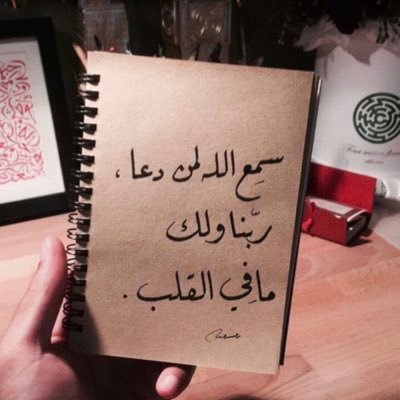 سمع الله لمن دعا ،
ربّنا ولك
ما في القلب .